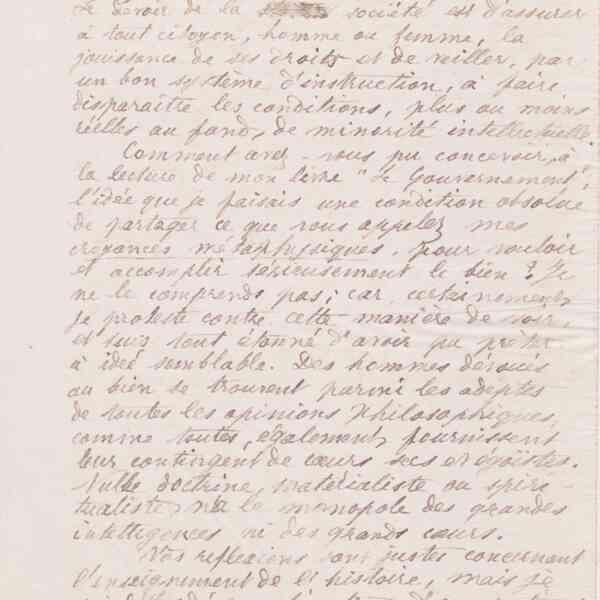 Le devoir de la société est d'assurer
à tout citoyen, homme ou femme, la
jouissance de ses droits et de veiller, par
un bon système d'instruction, à faire
disparaître les conditions, plus ou moins
réelles au fond, de minorité intellectuelle.
Comment avez-vous pu concevoir, à
la lecture de mon livre "Le Gouvernement",
l'idée que je faisais une condition absolue
de partager ce que vous appelez mes
croyances métaphysiques, pour vouloir
et accomplir sérieusement le bien ? Je
ne le comprends pas ; car, certainement,
je proteste contre cette manière de voir,
et suis tout étonné d'avoir pu prêter
à idée semblable. Des hommes dévoués
au bien se trouvent parmi les adeptes
de toutes les opinions philosophiques,
comme toutes, également, fournissent
leur contingent de cœurs secs et égoïstes.
Nulle doctrine, matérialiste ou spiri-
tualiste, n'a le monopole des grandes
intelligences ni des grands cœurs.
Vos réflexions sont justes concernant
l'enseignement de l'histoire, mais je